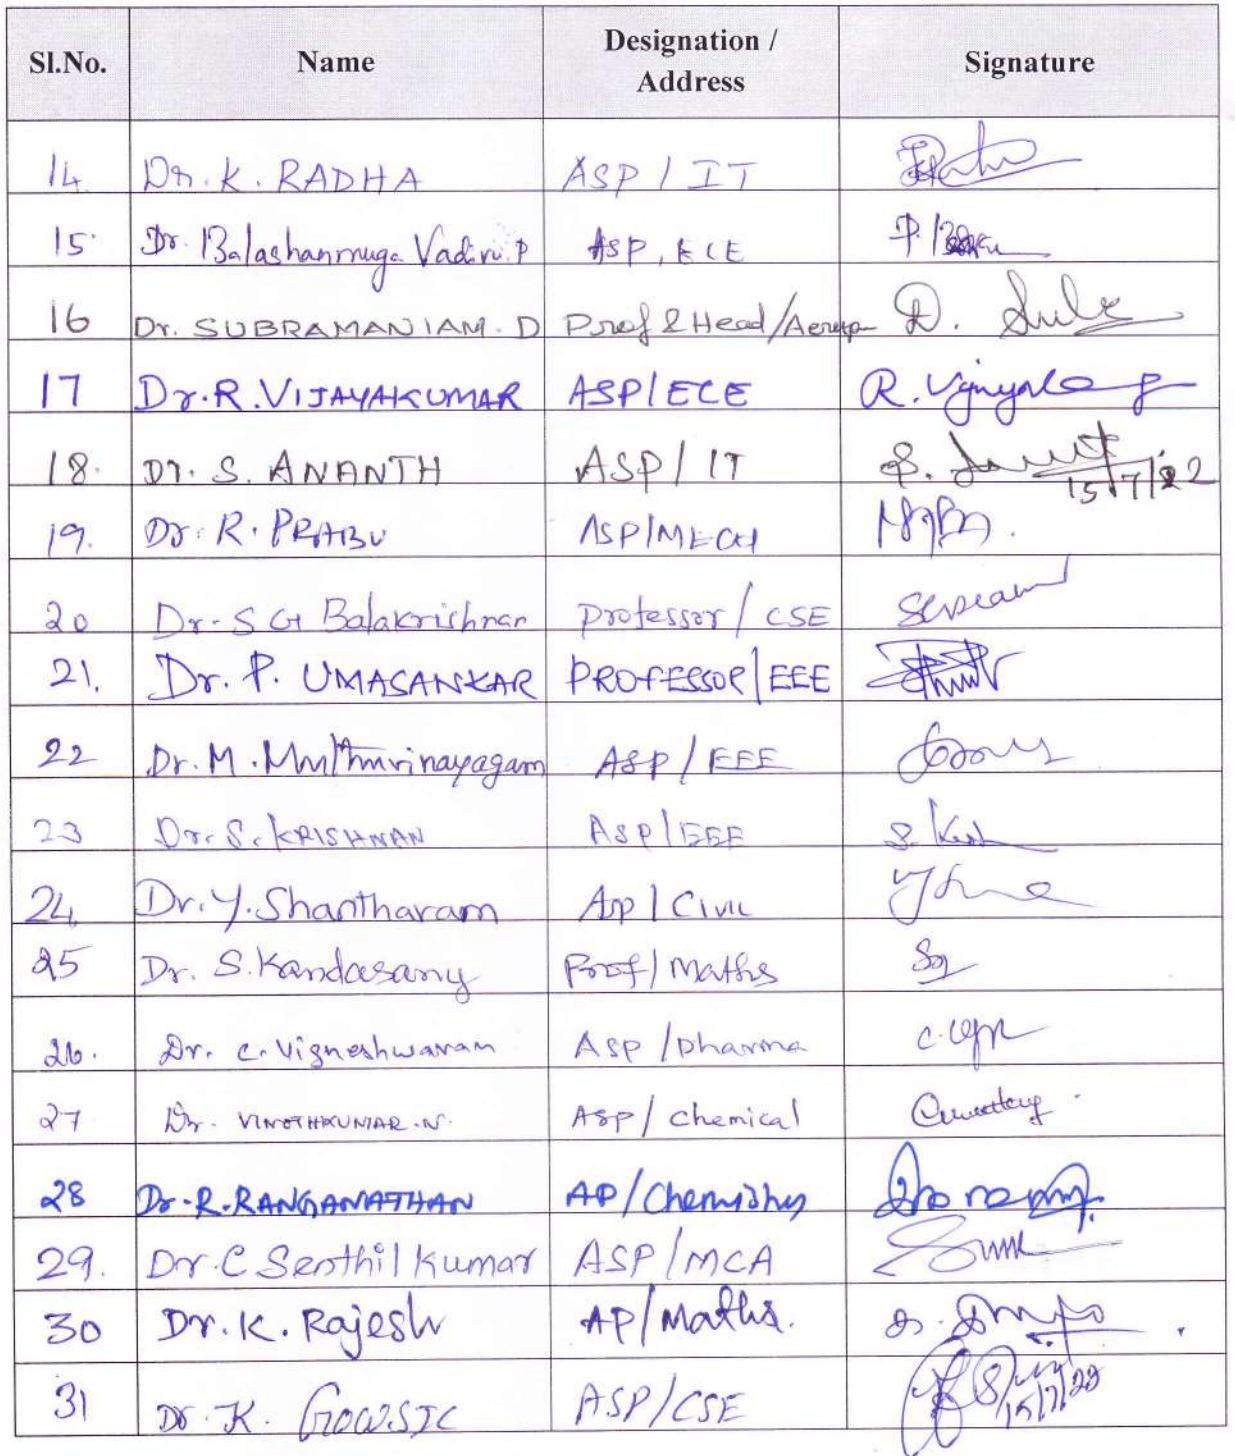 Sl.No. Name Designation / Address Signature
14. Dr. K. RADHA ASP / IT
15. Dr. Balashanmuga Vadivu P ASP, ECE P.
16 Dr. SUBRAMANIAM. D Prof & Head/Aero D.
17 Dr. R. VIJAYAKUMAR ASP/ECE R.
18. Dr. S. ANANTH ASP/ IT S. 15/7/22
19. Dr. R. PRABU ASP/MECH
20 Dr. S G Balakrishnan Professor / CSE
21. Dr. P. UMASANKAR PROFESSOR/EEE
22 Dr. M. Muthuvinayagam ASP / EEE
23 Dr. S. KRISHNAN ASP/EEE S.
24 Dr. Y. Shantharam Asp / Civil
25 Dr. S. Kandasamy Prof / Maths
26. Dr. C. Vigneshwaram Asp / Pharma C.
27 Dr. VINOTHKUMAR. N. Asp / Chemical
28 Dr. R. RANGANATHAN AP/Chemistry
29. Dr. C Senthil Kumar ASP/MCA
30 Dr. K. Rajesh AP/Maths.
31 Dr. K. GOWSIC ASP/CSE 15/7/22